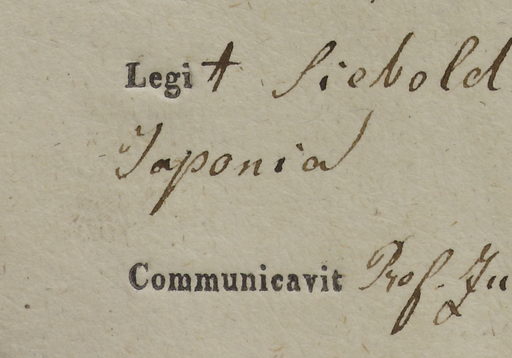 Legit Siebold
Japonia
Communicavit Prof. Zu